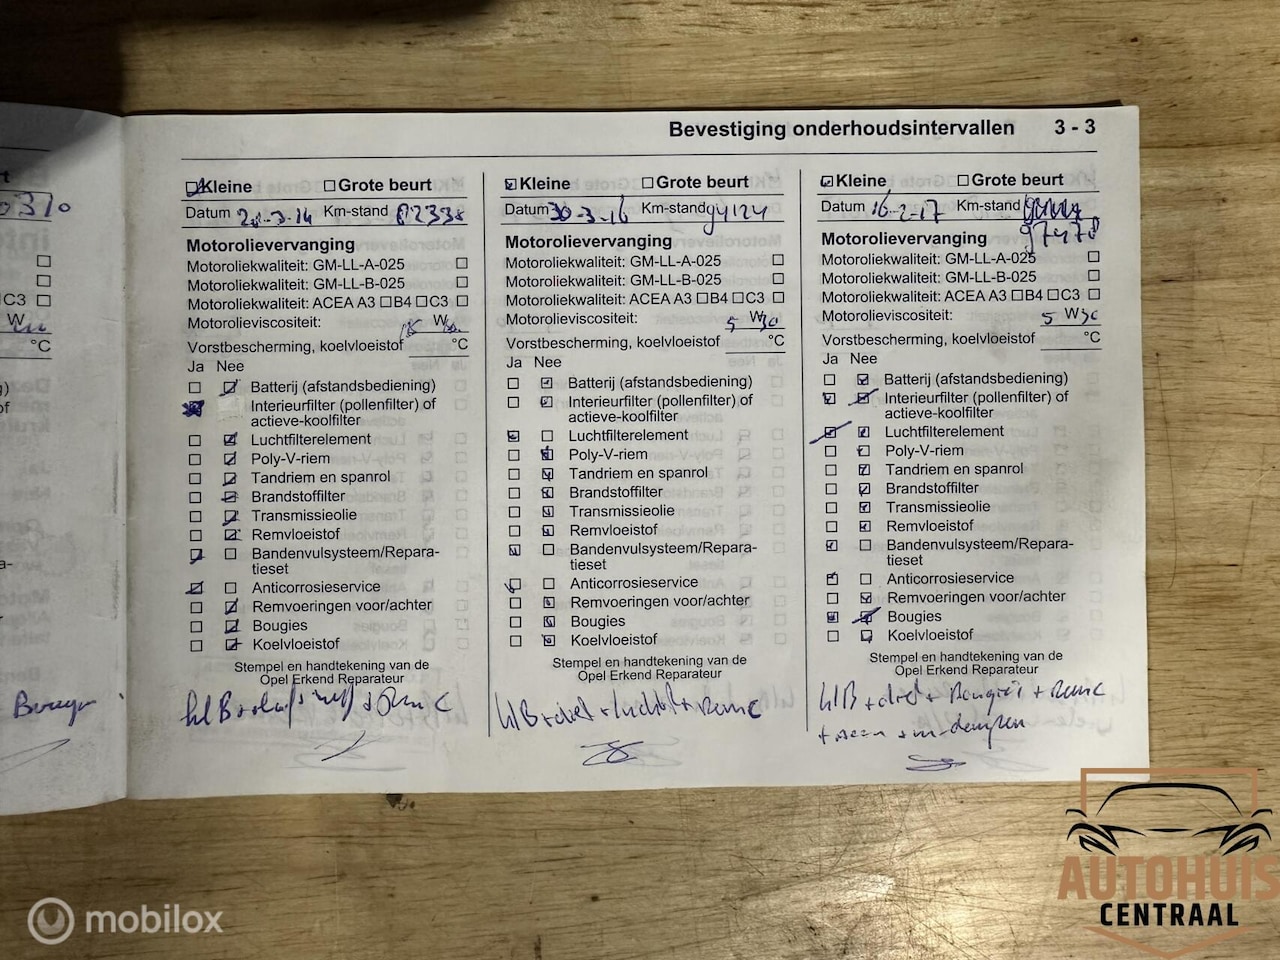 Bevestiging onderhoudsintervallen 3 - 3
Kleine Grote beurt
Datum 20-3-14 Km-stand 82338
Motorolievervanging
Motoroliekwaliteit: GM-LL-A-025
Motoroliekwaliteit: GM-LL-B-025
Motoroliekwaliteit: ACEA A3 B4 C3
Motorolieviscositeit: W
Vorstbescherming, koelvloeistof °C
Ja Nee
Batterij (afstandsbediening)
Interieurfilter (pollenfilter) of
actieve-koolfilter
Luchtfilterelement
Poly-V-riem
Tandriem en spanrol
Brandstoffilter
Transmissieolie
Remvloeistof
Bandenvulsysteem/Repara-
tieset
Anticorrosieservice
Remvoeringen voor/achter
Bougies
Koelvloeistof
Stempel en handtekening van de
Opel Erkend Reparateur
Kleine Grote beurt
Datum 30-3-16 Km-stand 94124
Motorolievervanging
Motoroliekwaliteit: GM-LL-A-025
Motoroliekwaliteit: GM-LL-B-025
Motoroliekwaliteit: ACEA A3 B4 C3
Motorolieviscositeit: 5 W 30
Vorstbescherming, koelvloeistof °C
Ja Nee
Batterij (afstandsbediening)
Interieurfilter (pollenfilter) of
actieve-koolfilter
Luchtfilterelement
Poly-V-riem
Tandriem en spanrol
Brandstoffilter
Transmissieolie
Remvloeistof
Bandenvulsysteem/Repara-
tieset
Anticorrosieservice
Remvoeringen voor/achter
Bougies
Koelvloeistof
Stempel en handtekening van de
Opel Erkend Reparateur
Kleine Grote beurt
Datum 16-2-17 Km-stand
97478
Motorolievervanging
Motoroliekwaliteit: GM-LL-A-025
Motoroliekwaliteit: GM-LL-B-025
Motoroliekwaliteit: ACEA A3 B4 C3
Motorolieviscositeit: 5 W 30
Vorstbescherming, koelvloeistof °C
Ja Nee
Batterij (afstandsbediening)
Interieurfilter (pollenfilter) of
actieve-koolfilter
Luchtfilterelement
Poly-V-riem
Tandriem en spanrol
Brandstoffilter
Transmissieolie
Remvloeistof
Bandenvulsysteem/Repara-
tieset
Anticorrosieservice
Remvoeringen voor/achter
Bougies
Koelvloeistof
Stempel en handtekening van de
Opel Erkend Reparateur
C3
W
°C
mobilox
AUTOHUIS
CENTRAAL